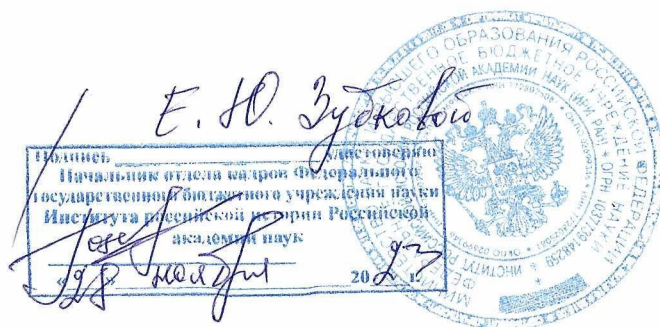 Е. Ю. Зубковой
Подпись удостоверяю
Начальник отдела кадров Федерального
государственного бюджетного учреждения науки
Института российской истории Российской
академии наук
«28» ноября 2023 г.
ВЫСШЕГО ОБРАЗОВАНИЯ РОССИЙСКОЙ ФЕДЕРАЦИИ
БЮДЖЕТНОЕ УЧРЕЖДЕНИЕ НАУКИ
АКАДЕМИИ НАУК (ИРИ РАН)
ИНСТИТУТ